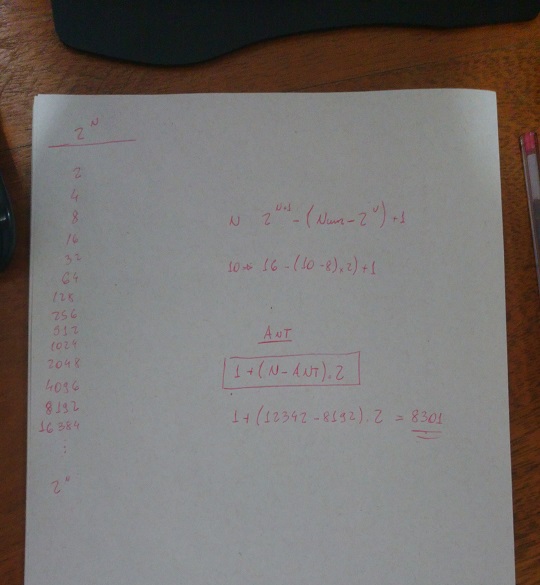 2^N
2
4
8
16
32
64
128
256
512
1024
2048
4096
8192
16384
⋮
2^n
N 2^{N+1} - (Num - 2^N) + 1
10 → 16 - (10 - 8).2) + 1
ANT
1 + (N - ANT).2
1 + (12342 - 8192).2 = 8301